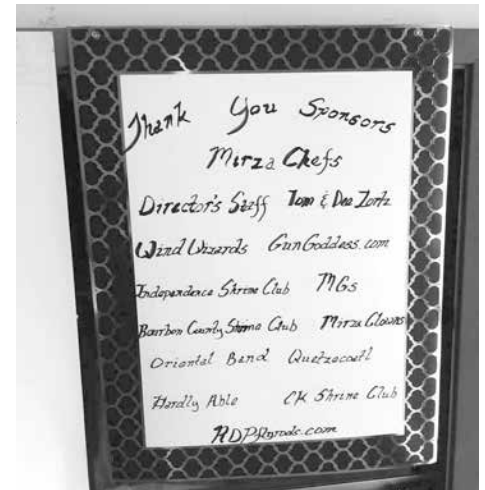 Thank You Sponsors
Mirza Chefs
Director's Staff Tom & Dee Zortz
Wind Wizards GunGoddess.com
Independence Shrine Club MGs
Bourbon County Shrine Club Mirza Clowns
Oriental Band Quetzacoatl
Hardly Able CK Shrine Club